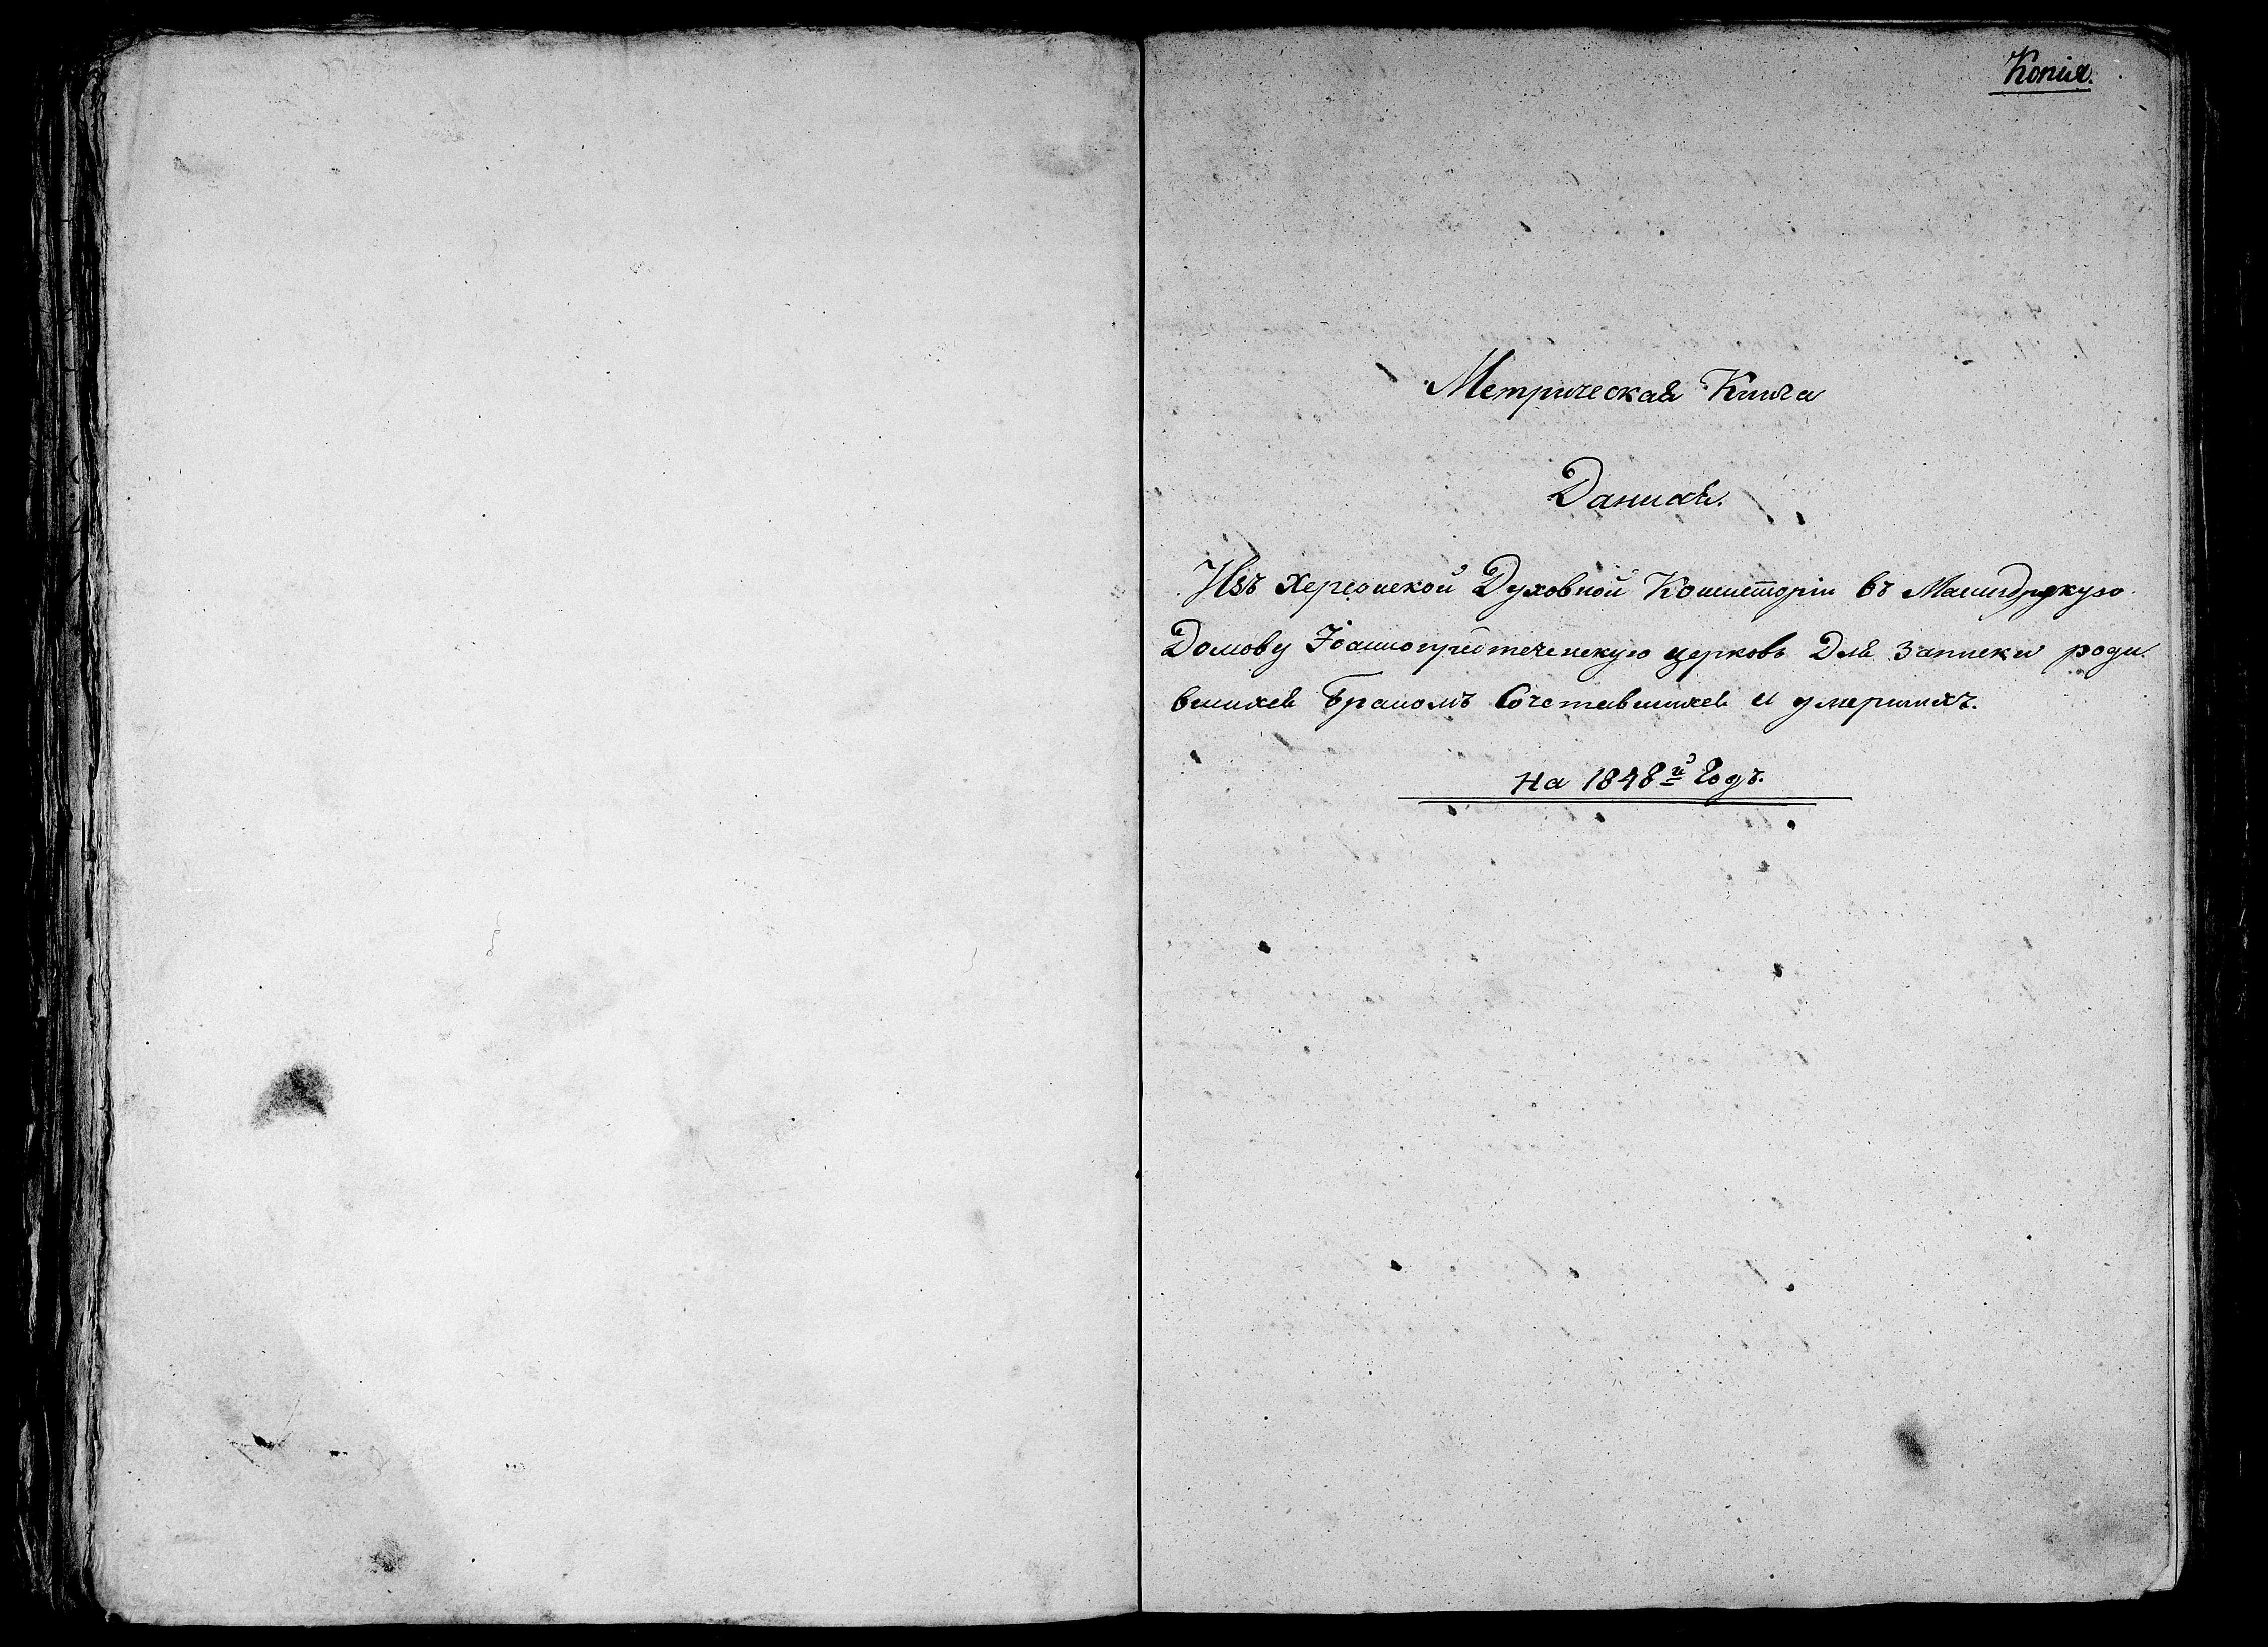 Копія.
Метрическая Книга
Данная.
Изъ Херсонской Духовной Консисторіи въ
Домову Іоаннопредтеченскую церковь Для Записки роди-
вшихся Бракомъ Сочетавшихся и умершихъ.
На 1848й Годъ.